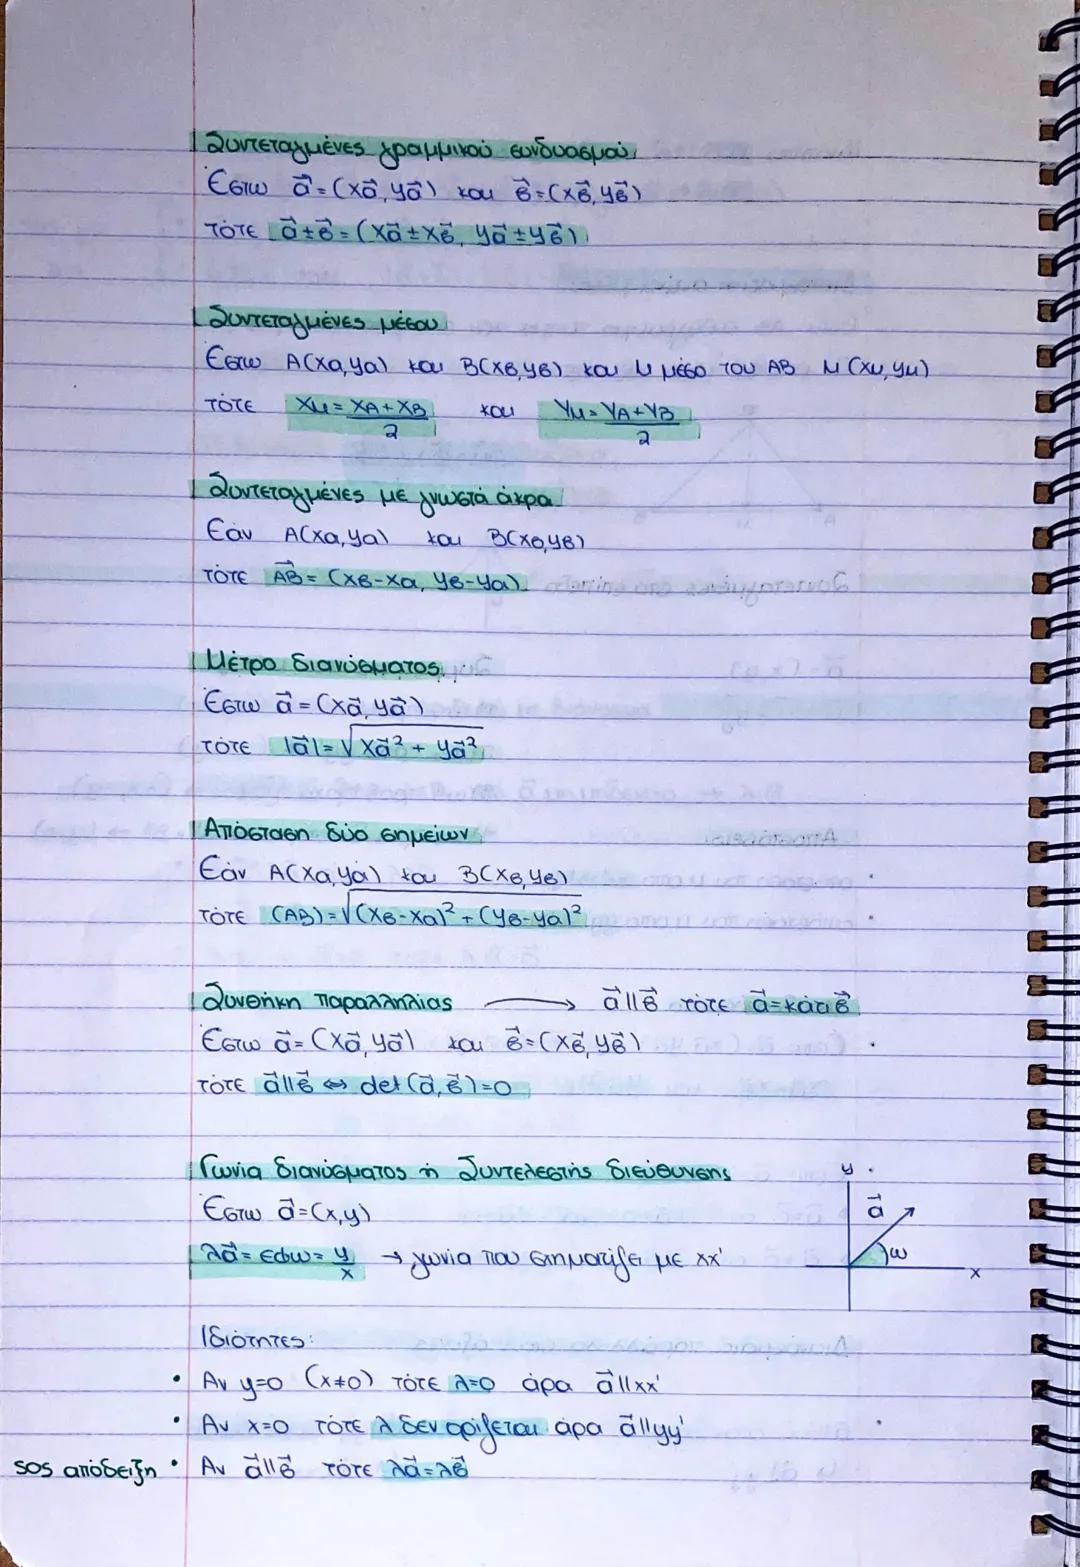 Συντεταγμένες γραμμικού συνδυασμού
Έστω a⃗=(xa⃗, ya⃗) και β⃗=(xβ⃗, yβ⃗)
τότε a⃗±β⃗=(xa⃗±xβ⃗, ya⃗±yβ⃗)
Συντεταγμένες μέσου
Έστω A(xa, ya) και B(xβ, yβ) και M μέσο του AB M(xμ, yμ)
τότε xμ = (xA+xB)/2 και yμ = (yA+yB)/2
Συντεταγμένες με γνωστά άκρα
Εάν A(xa, ya) και B(xβ, yβ)
τότε AB⃗ = (xβ-xa, yβ-ya)
Μέτρο διανύσματος
Έστω a⃗=(xa⃗, ya⃗)
τότε |a⃗|=√(xa⃗² + ya⃗²)
Απόσταση δύο σημείων
Εάν A(xa, ya) και B(xβ, yβ)
τότε (AB)=√((xβ-xa)² + (yβ-ya)²)
Συνθήκη παραλληλίας → a⃗||β⃗ τότε a⃗=κάτιβ⃗
Έστω a⃗=(xa⃗, ya⃗) και β⃗=(xβ⃗, yβ⃗)
τότε a⃗||β⃗ ⇔ det(a⃗, β⃗)=0
Γωνία διανύσματος ή Συντελεστής διεύθυνσης
Έστω a⃗=(x,y)
λa⃗ = εφω = y/x → γωνία που σχηματίζει με xx'
y
a⃗
ω
x
Ιδιότητες:
• Αν y=0 (x≠0) τότε λ=0 άρα a⃗||xx'
• Αν x=0 τότε λ δεν ορίζεται άρα a⃗||yy'
SOS απόδειξη • Αν a⃗||β⃗ τότε λa⃗=λβ⃗